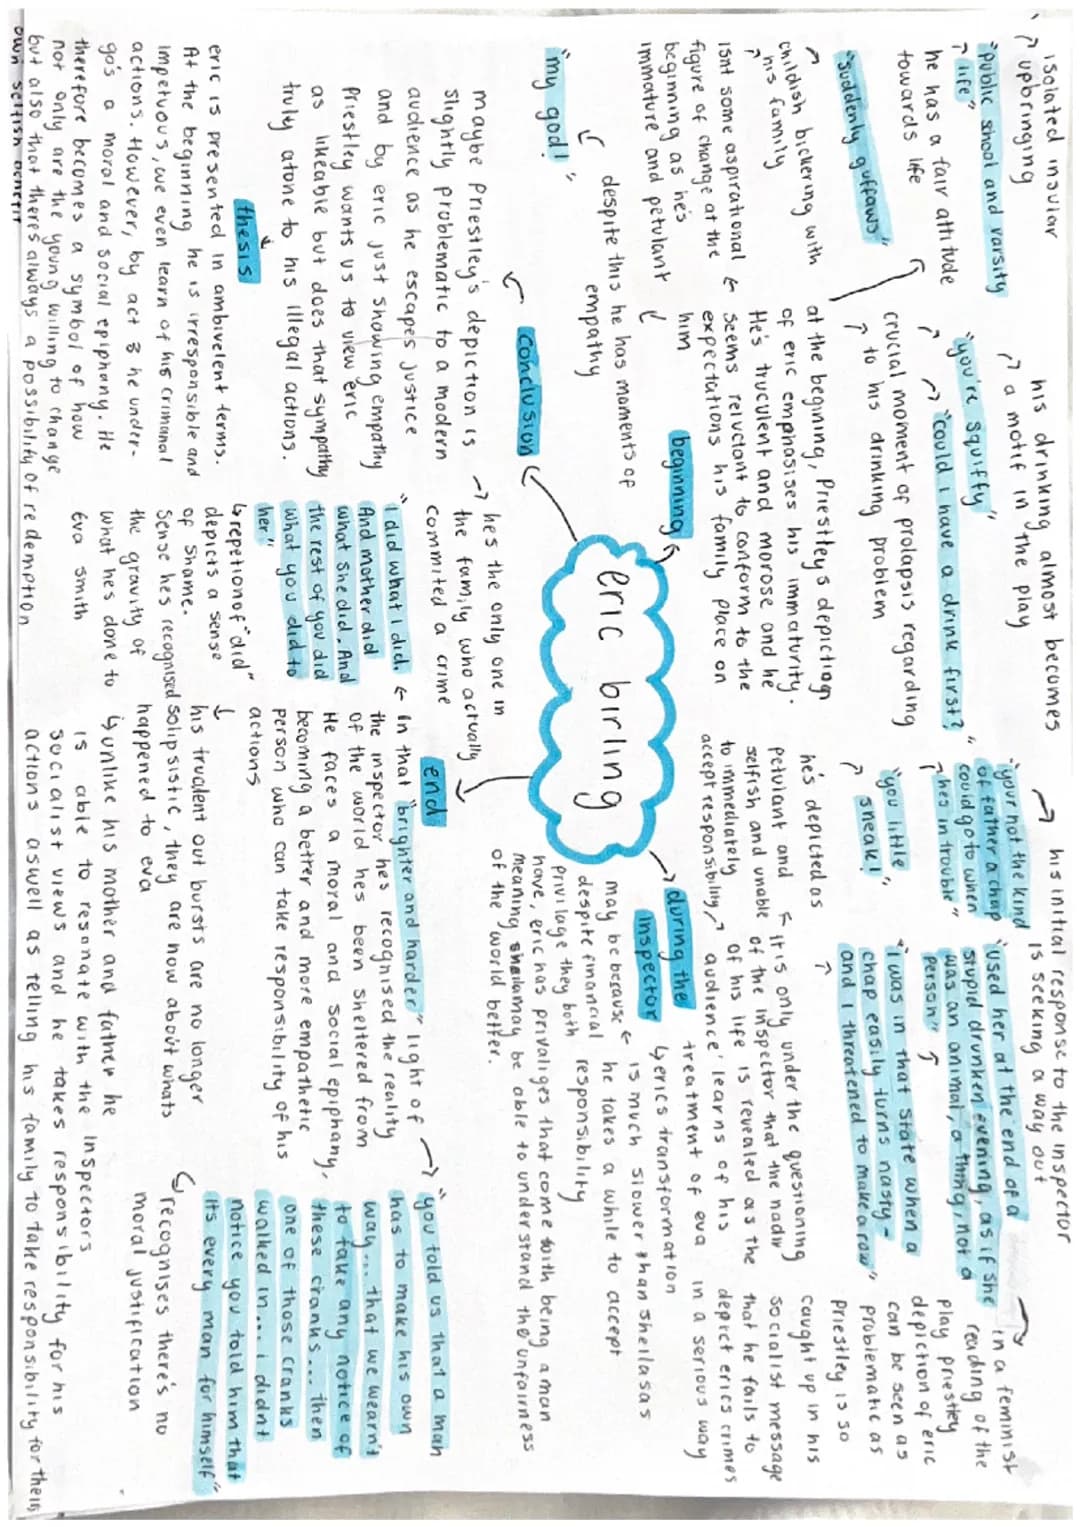 isolated insular
upbringing
"public school and varsity
life"
he has a fair attitude
towards life
"suddenly guffaws"
childish bickering with
his family
isnt some aspirational
figure of change at the
beginning as he's
immature and petulant
despite this he has moments of
empathy
"my god!"
his drinking almost becomes
a motif in the play
"you're squiffy"
"could i have a drink first?"
crucial moment of prolapsis regarding
to his drinking problem
at the begining, Priestleys depiction
of eric emphasises his immaturity.
He's truculent and morose and he
seems reluctant to conform to the
expectations his family place on
him
beginning
his initial response to the inspector
is seeking a way out
"your not the kind
of father a chap
could go to when
hes in trouble"
"you little
sneak!"
he's depicted as
petulant and
selfish and unable
to immediately
accept responsibility
"used her at the end of a
stupid drunken evening, as if she
was an animal, a thing, not a
person"
"i was in that state when a
chap easily turns nasty-
and i threatened to make a row"
it is only under the questioning
of the inspector that the nadir
of his life is revealed as the
audience learns of his
treatment of eva
in a feminist
reading of the
play priestley
depiction of eric
can be seen as
problematic as
priestley is so
caught up in his
socialist message
that he fails to
depict erics crimes
in a serious way
during the
inspector
erics transformation
is much slower than sheilas as
he takes a while to accept
responsibility
may be because
despite financial
privilage they both
have, eric has privaliges that come with being a man
meaning sheila may be able to understand the unfairness
of the world better.
eric birling
conclusion
maybe Priestley's depiction is
slightly problematic to a modern
audience as he escapes justice
and by eric just showing empathy
Priestley wants us to view eric
as likeable but does that sympathy
truly atone to his illegal actions.
thesis
eric is presented in ambivelent terms.
At the beginning he is irresponsible and
impetuous, we even learn of his crimanal
actions. However, by act 3 he under-
go's a moral and social epiphany. He
therefore becomes a symbol of how
not only are the young willing to change
but also that theres always a possibility of redemption
own selfish benefit
end
hes the only one in
the family who actually
commited a crime
"i did what i did.
And mother did
what she did. And
the rest of you did
what you did to
her"
repetion of "did"
depicts a sense
of shame.
Sense hes recognised
the gravity of
what hes done to
Eva smith
in that "brighter and harder" light of
the inspector hes recognised the reality
of the world hes been sheltered from
He faces a moral and social epiphany,
becoming a better and more empathetic
person who can take responsibility of his
actions
his truculent out bursts are no longer
solipsistic, they are now about whats
happened to eva
unlike his mother and father he
is able to resonate with the inspectors
socialist views and he takes responsibility for his
actions aswell as telling his family to take responsibility for their
"you told us that a man
has to make his own
way... that we wearn't
to take any notice of
these cranks... then
one of those cranks
walked in... i didnt
notice you told him that
its every man for himself"
recognises there's no
moral justification